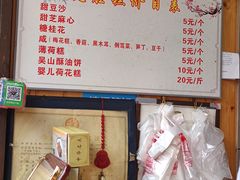 甜豆沙 5元/个
甜芝麻心 5元/个
糖桂花 5元/个
咸(梅花糕、香菇、黑木耳、倒笃菜、笋丁、豆干) 5元/个
薄荷糕 5元/个
吴山酥油饼 5元/个
婴儿荷花糕 10元/个
20元/斤